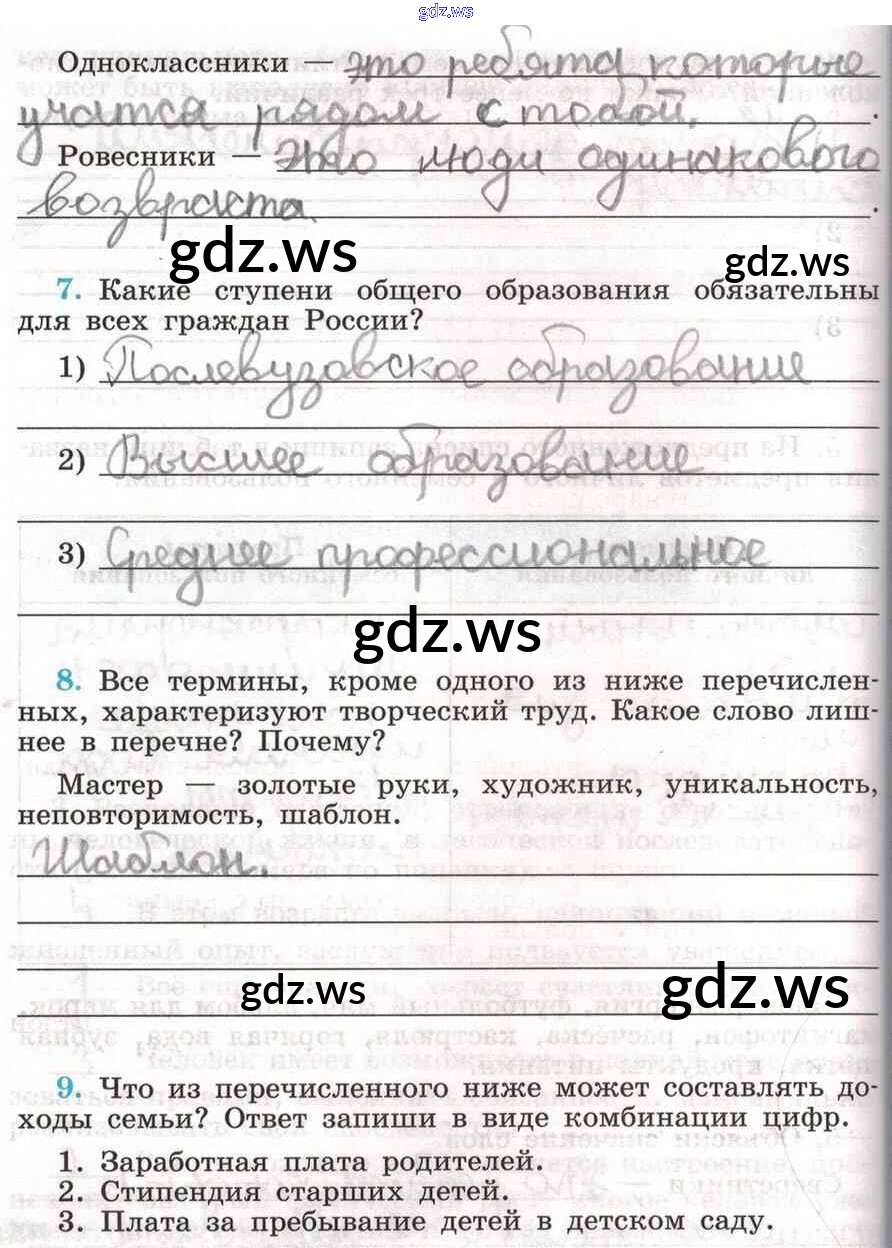 gdz.ws
Одноклассники — это ребята которые
учатся рядом с тобой.
Ровесники — это люди одинакового
возвраста.
gdz.ws
gdz.ws
7. Какие ступени общего образования обязательны
для всех граждан России?
1) Послевузавское образование
2) Высшее образование
3) Среднее профессиональное
gdz.ws
8. Все термины, кроме одного из ниже перечислен-
ных, характеризуют творческий труд. Какое слово лиш-
нее в перечне? Почему?
Мастер — золотые руки, художник, уникальность,
неповторимость, шаблон.
Шаблон.
gdz.ws
gdz.ws
9. Что из перечисленного ниже может составлять до-
ходы семьи? Ответ запиши в виде комбинации цифр.
1. Заработная плата родителей.
2. Стипендия старших детей.
3. Плата за пребывание детей в детском саду.